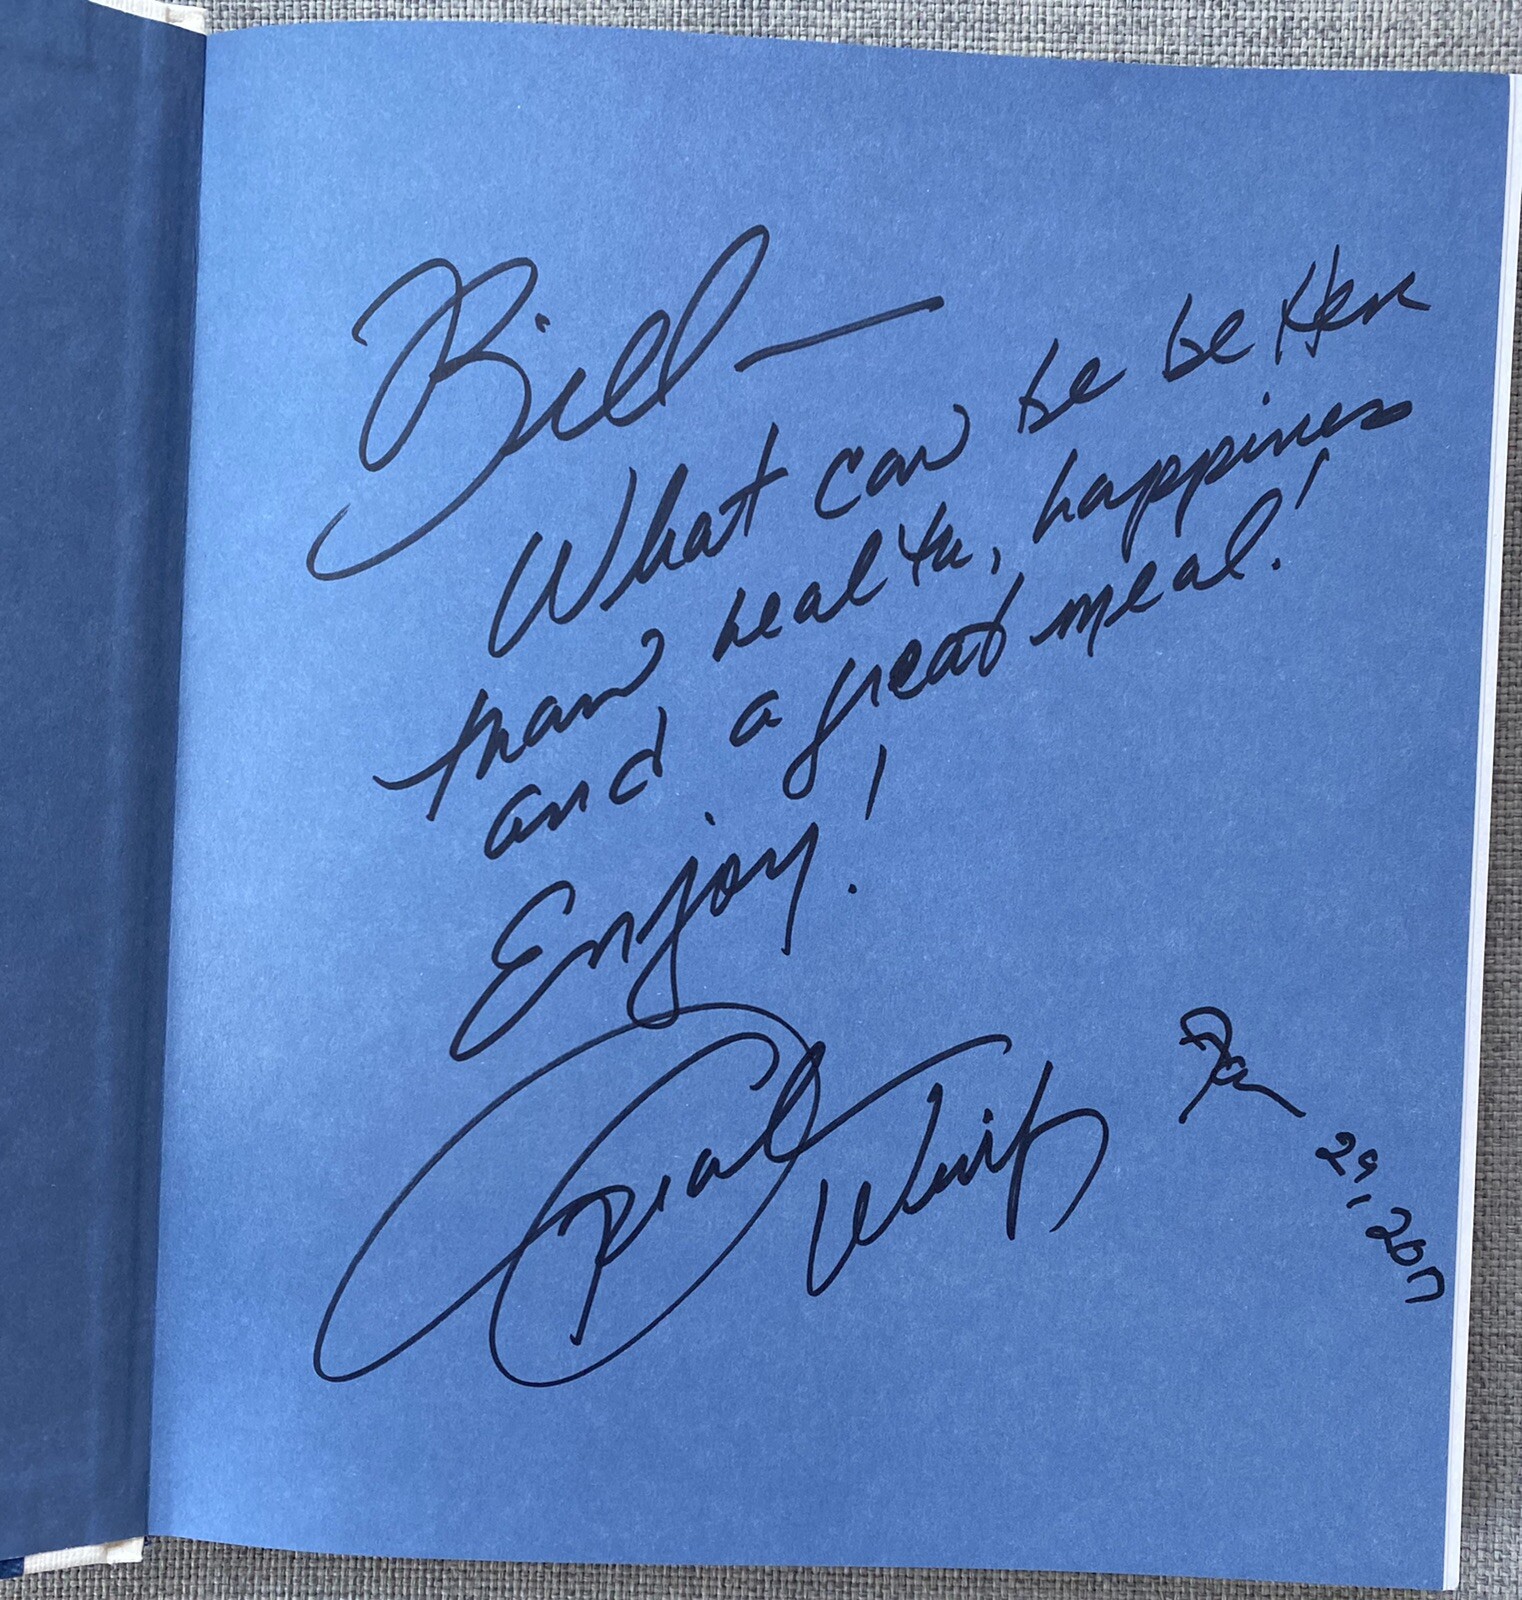 Bill —
What can be better
than health, happiness
and a great meal!
Enjoy!
29, 2017